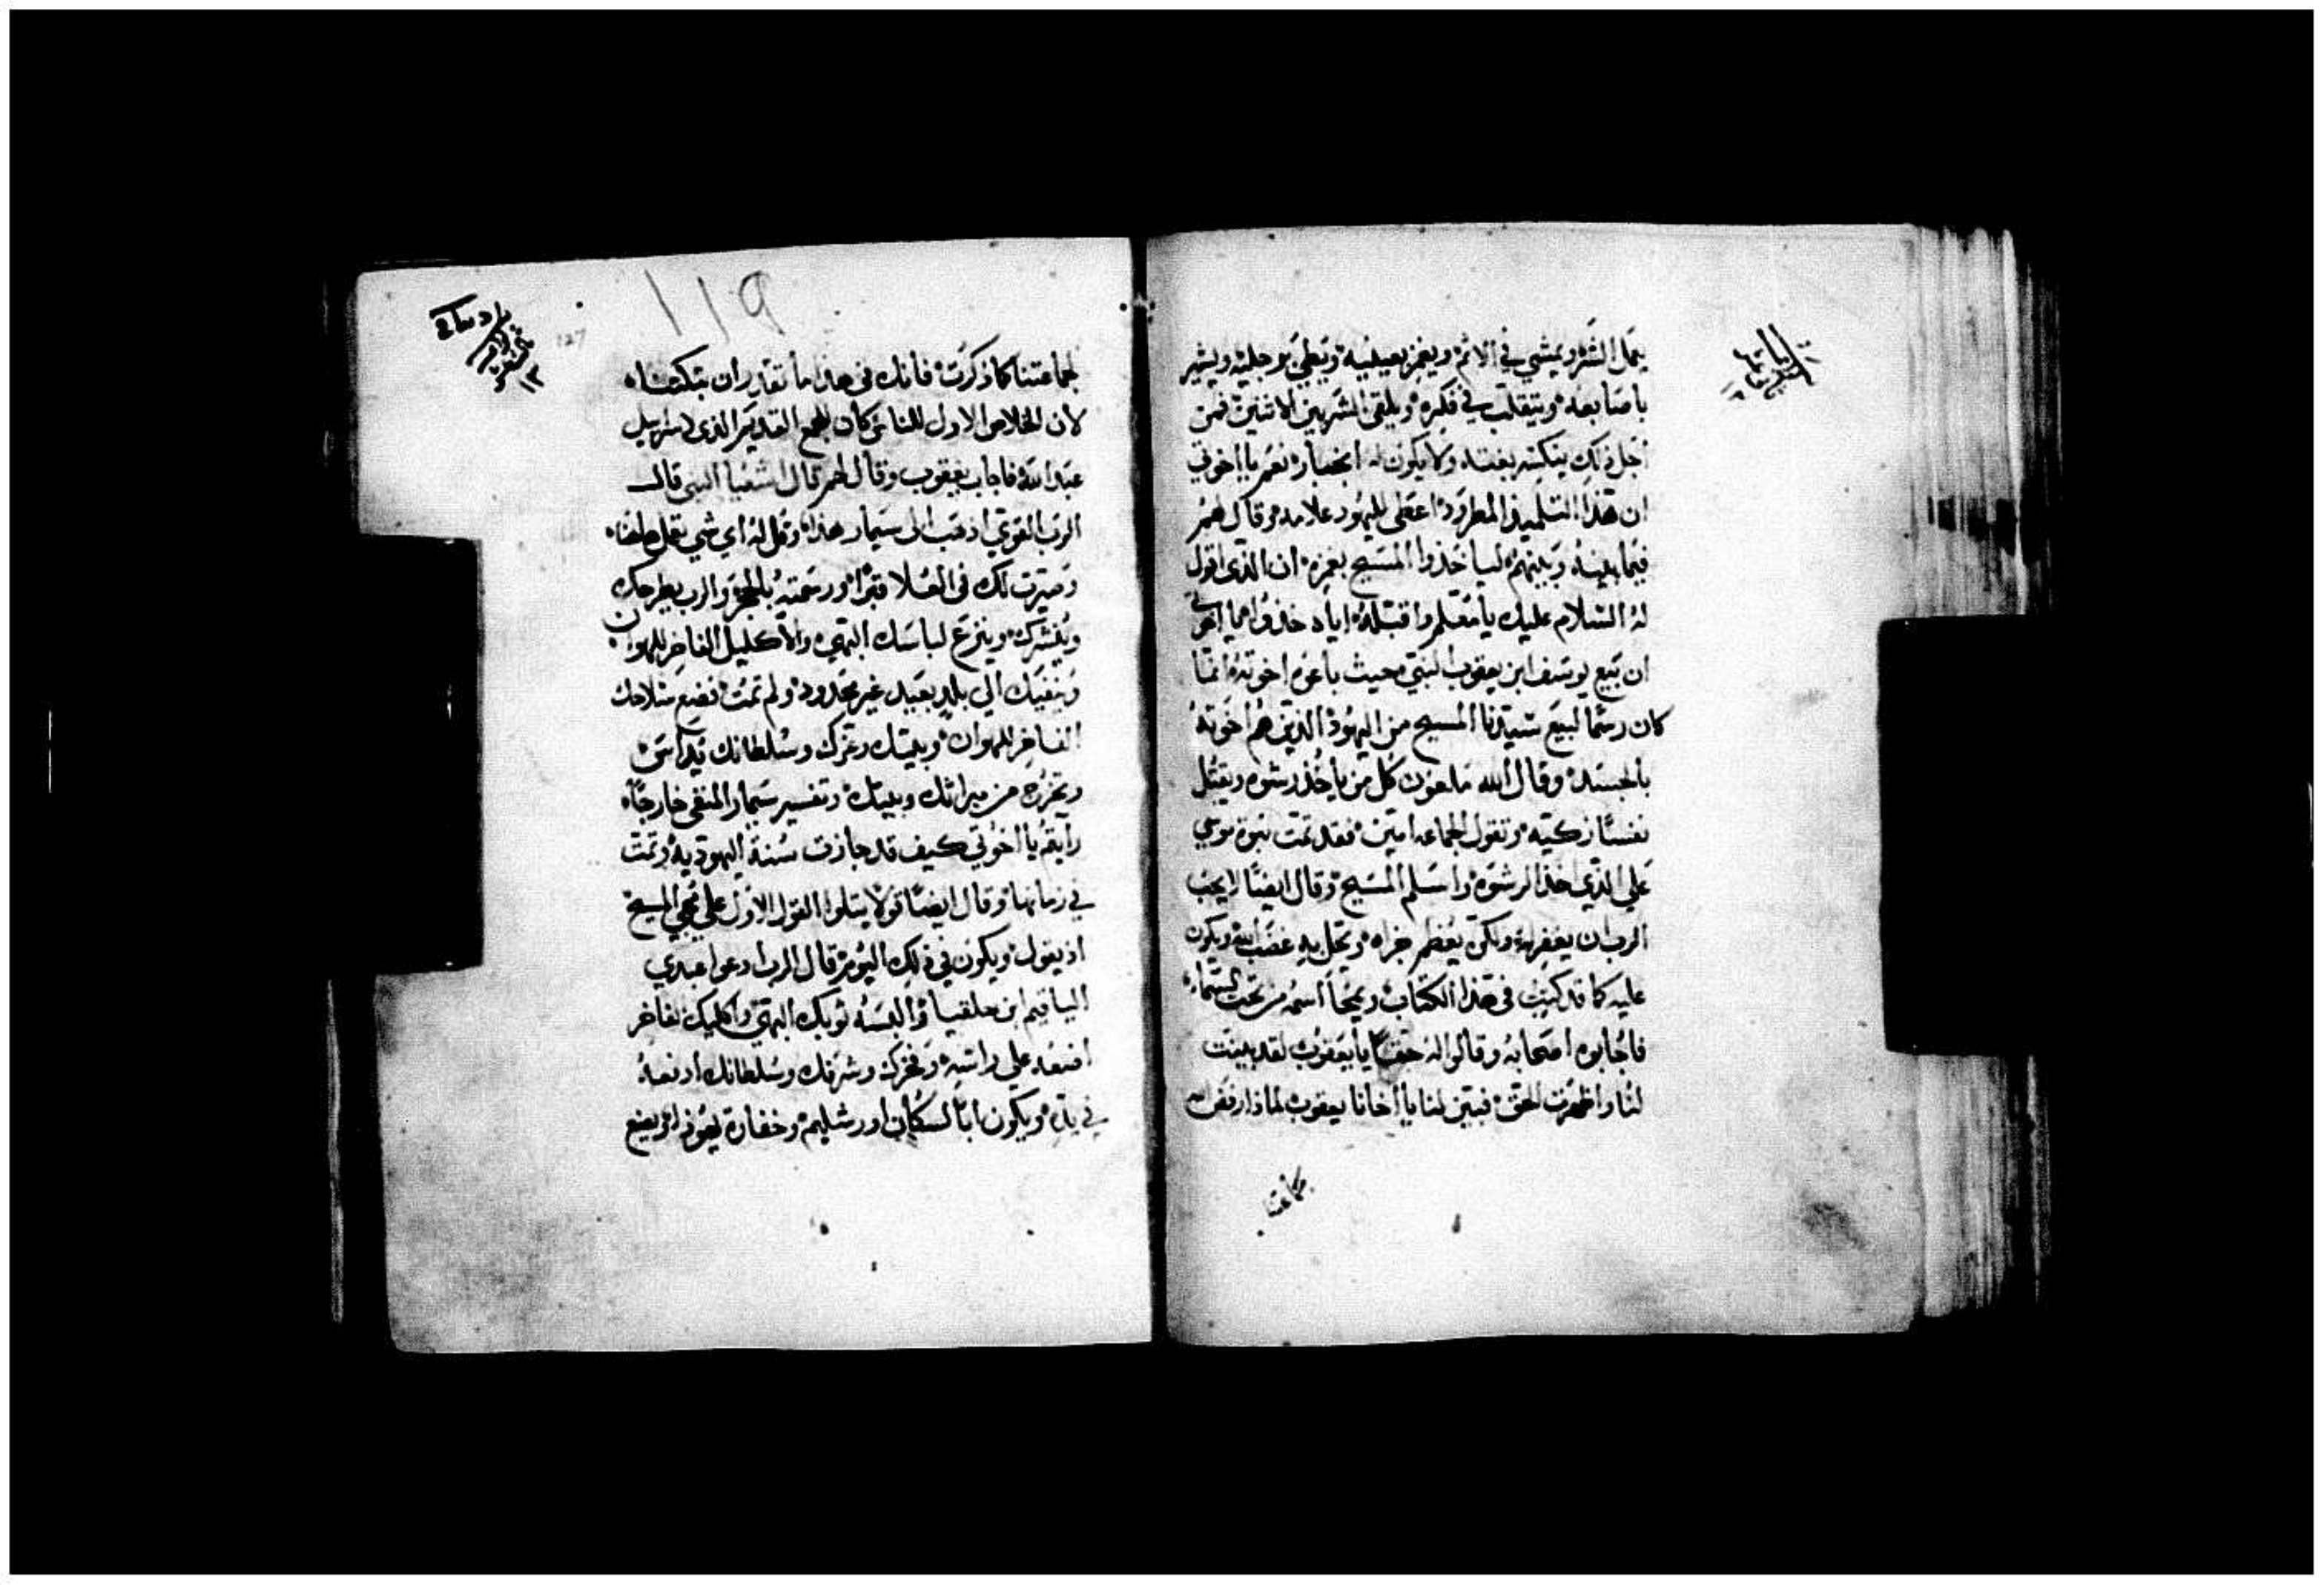 يعمل الشر ويمشي في الاثم ويغمز بعينيه ويخطي برجليه ويشير
باصابعه ويتقلب في فكره ويلقي الشر بين الاثنين فمن
اجل ذلك ينكسر بغتة ولا يكون له انجبار نعم يا اخوتي
ان هذا التلميذ المطرود اعطى لليهود علامه وقال لهم
فيما بينه وبينهم لياخذوا المسيح بغمزه ان الذي اقول
له السلام عليك يا معلم واقبله اياه خذوا
ان بيع يوسف ابن يعقوب النبي حيث باعوه اخوته انما
كان رسما لبيع سيدنا المسيح من اليهود الذين هم اخوته
بالجسد وقال الله ملعون كل من ياخذ رشوه ويقتل
نفسا زكيه وتقول الجماعه امين فقد تمت نبوة موسي
علي الذي اخذ الرشوه واسلم المسيح وقال ايضا لا يحب
الرب ان يغفر له ولكن يعظم جزاه وتحل به غضب الله ويكون
عليه كما قد كتبت في هذا الكتاب ويمحا اسمه من تحت السماء
فاجابوه اصحابه وقالوا له حقا يا يعقوب لقد بينت
لنا واظهرت الحق فبين لنا يا اخانا يعقوب لماذا رفض الله
جماعتنا
١١٩
127
جماعتنا كما ذكرت فانك في هذا ما تقدر ان
لان الخلاص الاول كان القديم الذي لاسراييل
عبد الله فاجاب يعقوب وقال لهم قال اشعيا النبي قال
الرب القوي اذهب الى سيمار هذا وقل له اي شي تفعل هاهناه
وصيرت لك في العلا قبرا ورسمته بالحجر والرب يطرحك
وينشرك وينزع لباسك البهي والاكليل الفاخر للهوان
وينفيك الي بلد بعيد غير محدود ولم تمت فتضع سلاحك
الفاخر للهوان وبيتك وعزك وسلطانك يداس
وتخرج من ميراثك وبيتك وتفسير سيمار المنفي خارجاه
رايتم يا اخوتي كيف قد جازت سنة اليهودية وتمت
في زمانها وقال ايضا قولا يتلوا القول الاول علي مجي المسيح
اذ يقول ويكون في ذلك اليوم قال الرب ادعوا عبدي
الياقيم ابن حلقيا والبسه ثوبك البهي واكليلك الفاخر
اضعه علي راسه وفخرك وشرفك وسلطانك ادفعه
في يده ويكون ابا لسكان اورشليم وخفارة يهوذا ويضع